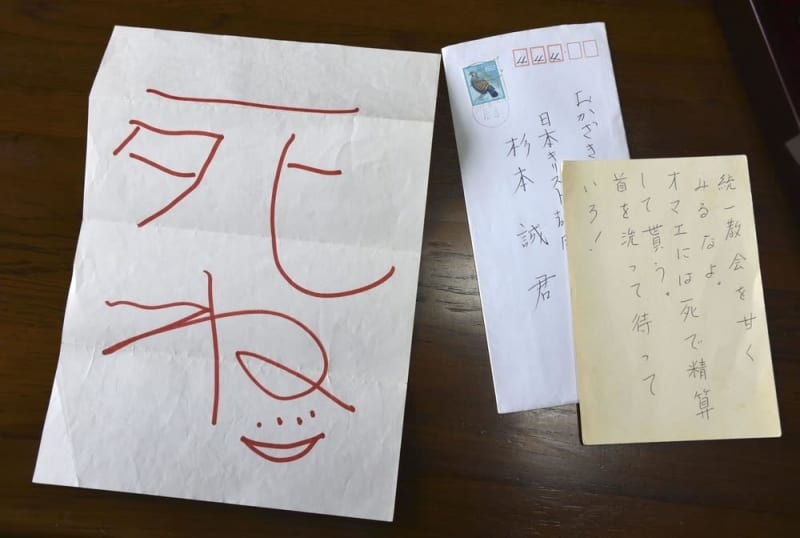 死ね
444
おかざき
日本キリスト教団
杉本 誠 君
統一教会を甘く
みるなよ。
オマエには死で精算
して貰う。
首を洗って待って
いろ!